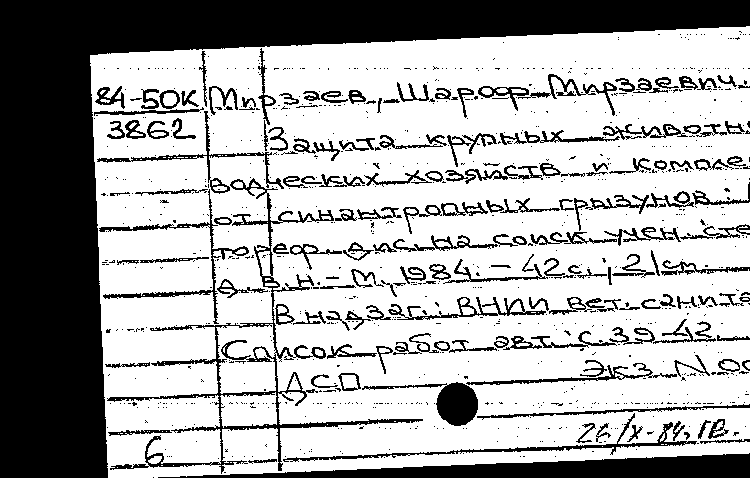 84-50К Мирзаев, Шароф Мирзаевич.
3862 Защита крупных животн
водческих хозяйств и компле
от синантропных грызунов:
тореф. дис. на соиск. учен. сте
д. в. н. - М., 1984. - 42 с.; 21 см.
В надзаг.: ВНИИ вет. санита
Список работ авт.: с. 39-42.
ДСП Экз. N 00
26/X-84. ГВ.
6